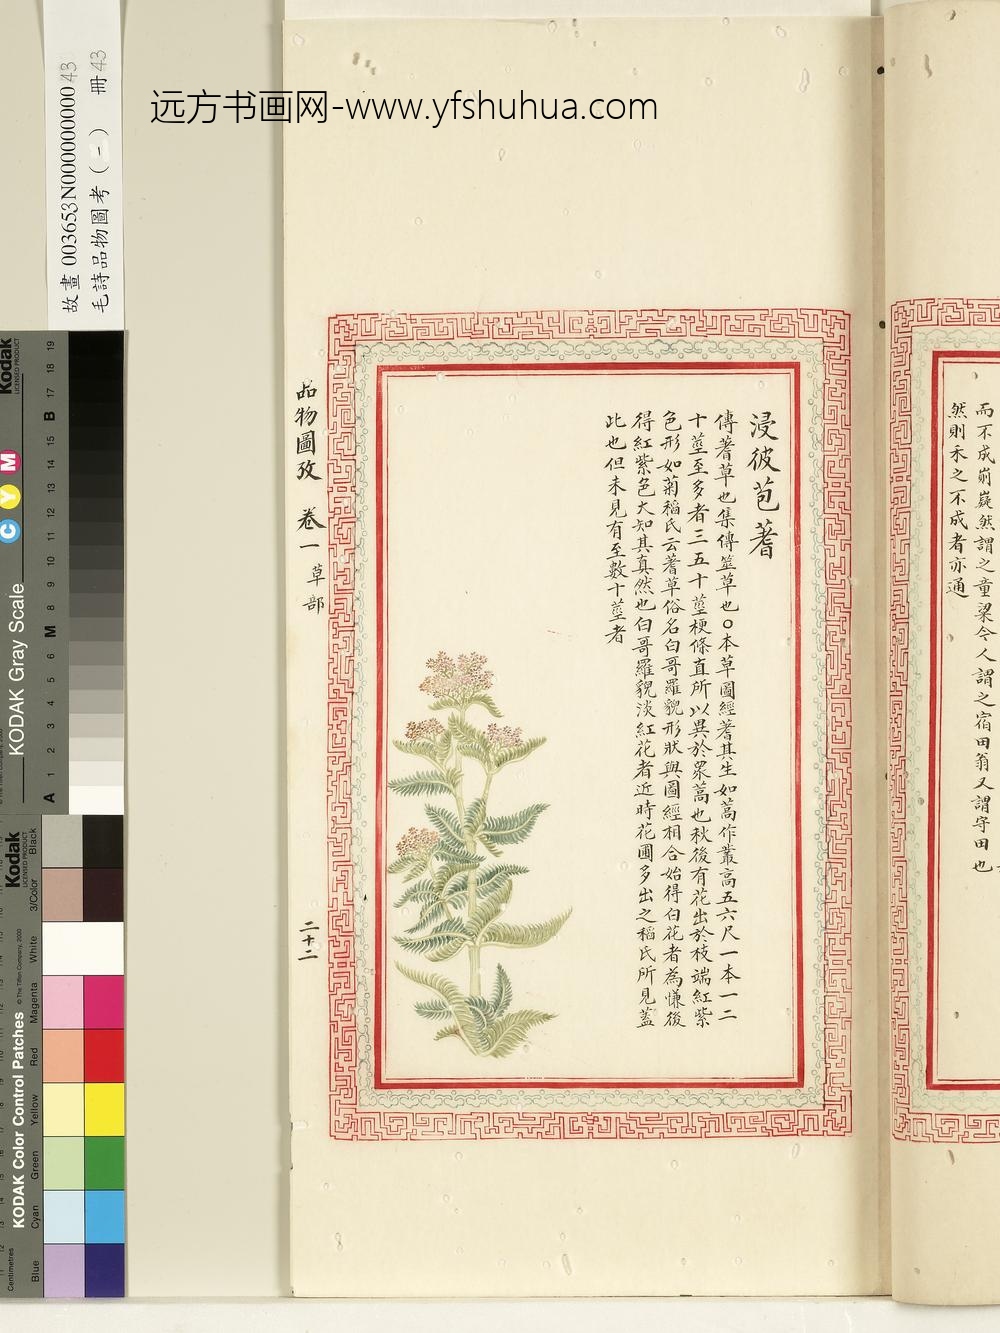 远方书画网-www.yfshuhua.com
故畫003653N00000000043
毛詩品物圖考（一） 冊43
而不成崱嶷然謂之童粱今人謂之宿田翁又謂守田也
然則禾之不成者亦通
浸彼苞蓍
傳蓍草也集傳筮草也○本草圖經蓍其生如蒿作叢高五六尺一本一二
十莖至多者三五十莖梗條直所以異於眾蒿也秋後有花出於枝端紅紫
色形如菊稻氏云蓍草俗名白哥羅貌形狀與圖經相合始得白花者為慊後
得紅紫色大知其真然也白哥羅貌淡紅花者近時花圃多出之稻氏所見蓋
此也但未見有至數十莖者
品物圖攷 卷一 草部 二十二
Kodak
LICENSED PRODUCT
KODAK Gray Scale
C Y M
A 1 2 3 4 5 6 M 8 9 10 11 12 13 14 15 B 17 18 19
Kodak
LICENSED PRODUCT
KODAK Color Control Patches
© The Tiffen Company, 2000
Centimetres
Blue Cyan Green Yellow Red Magenta White 3/Color Black